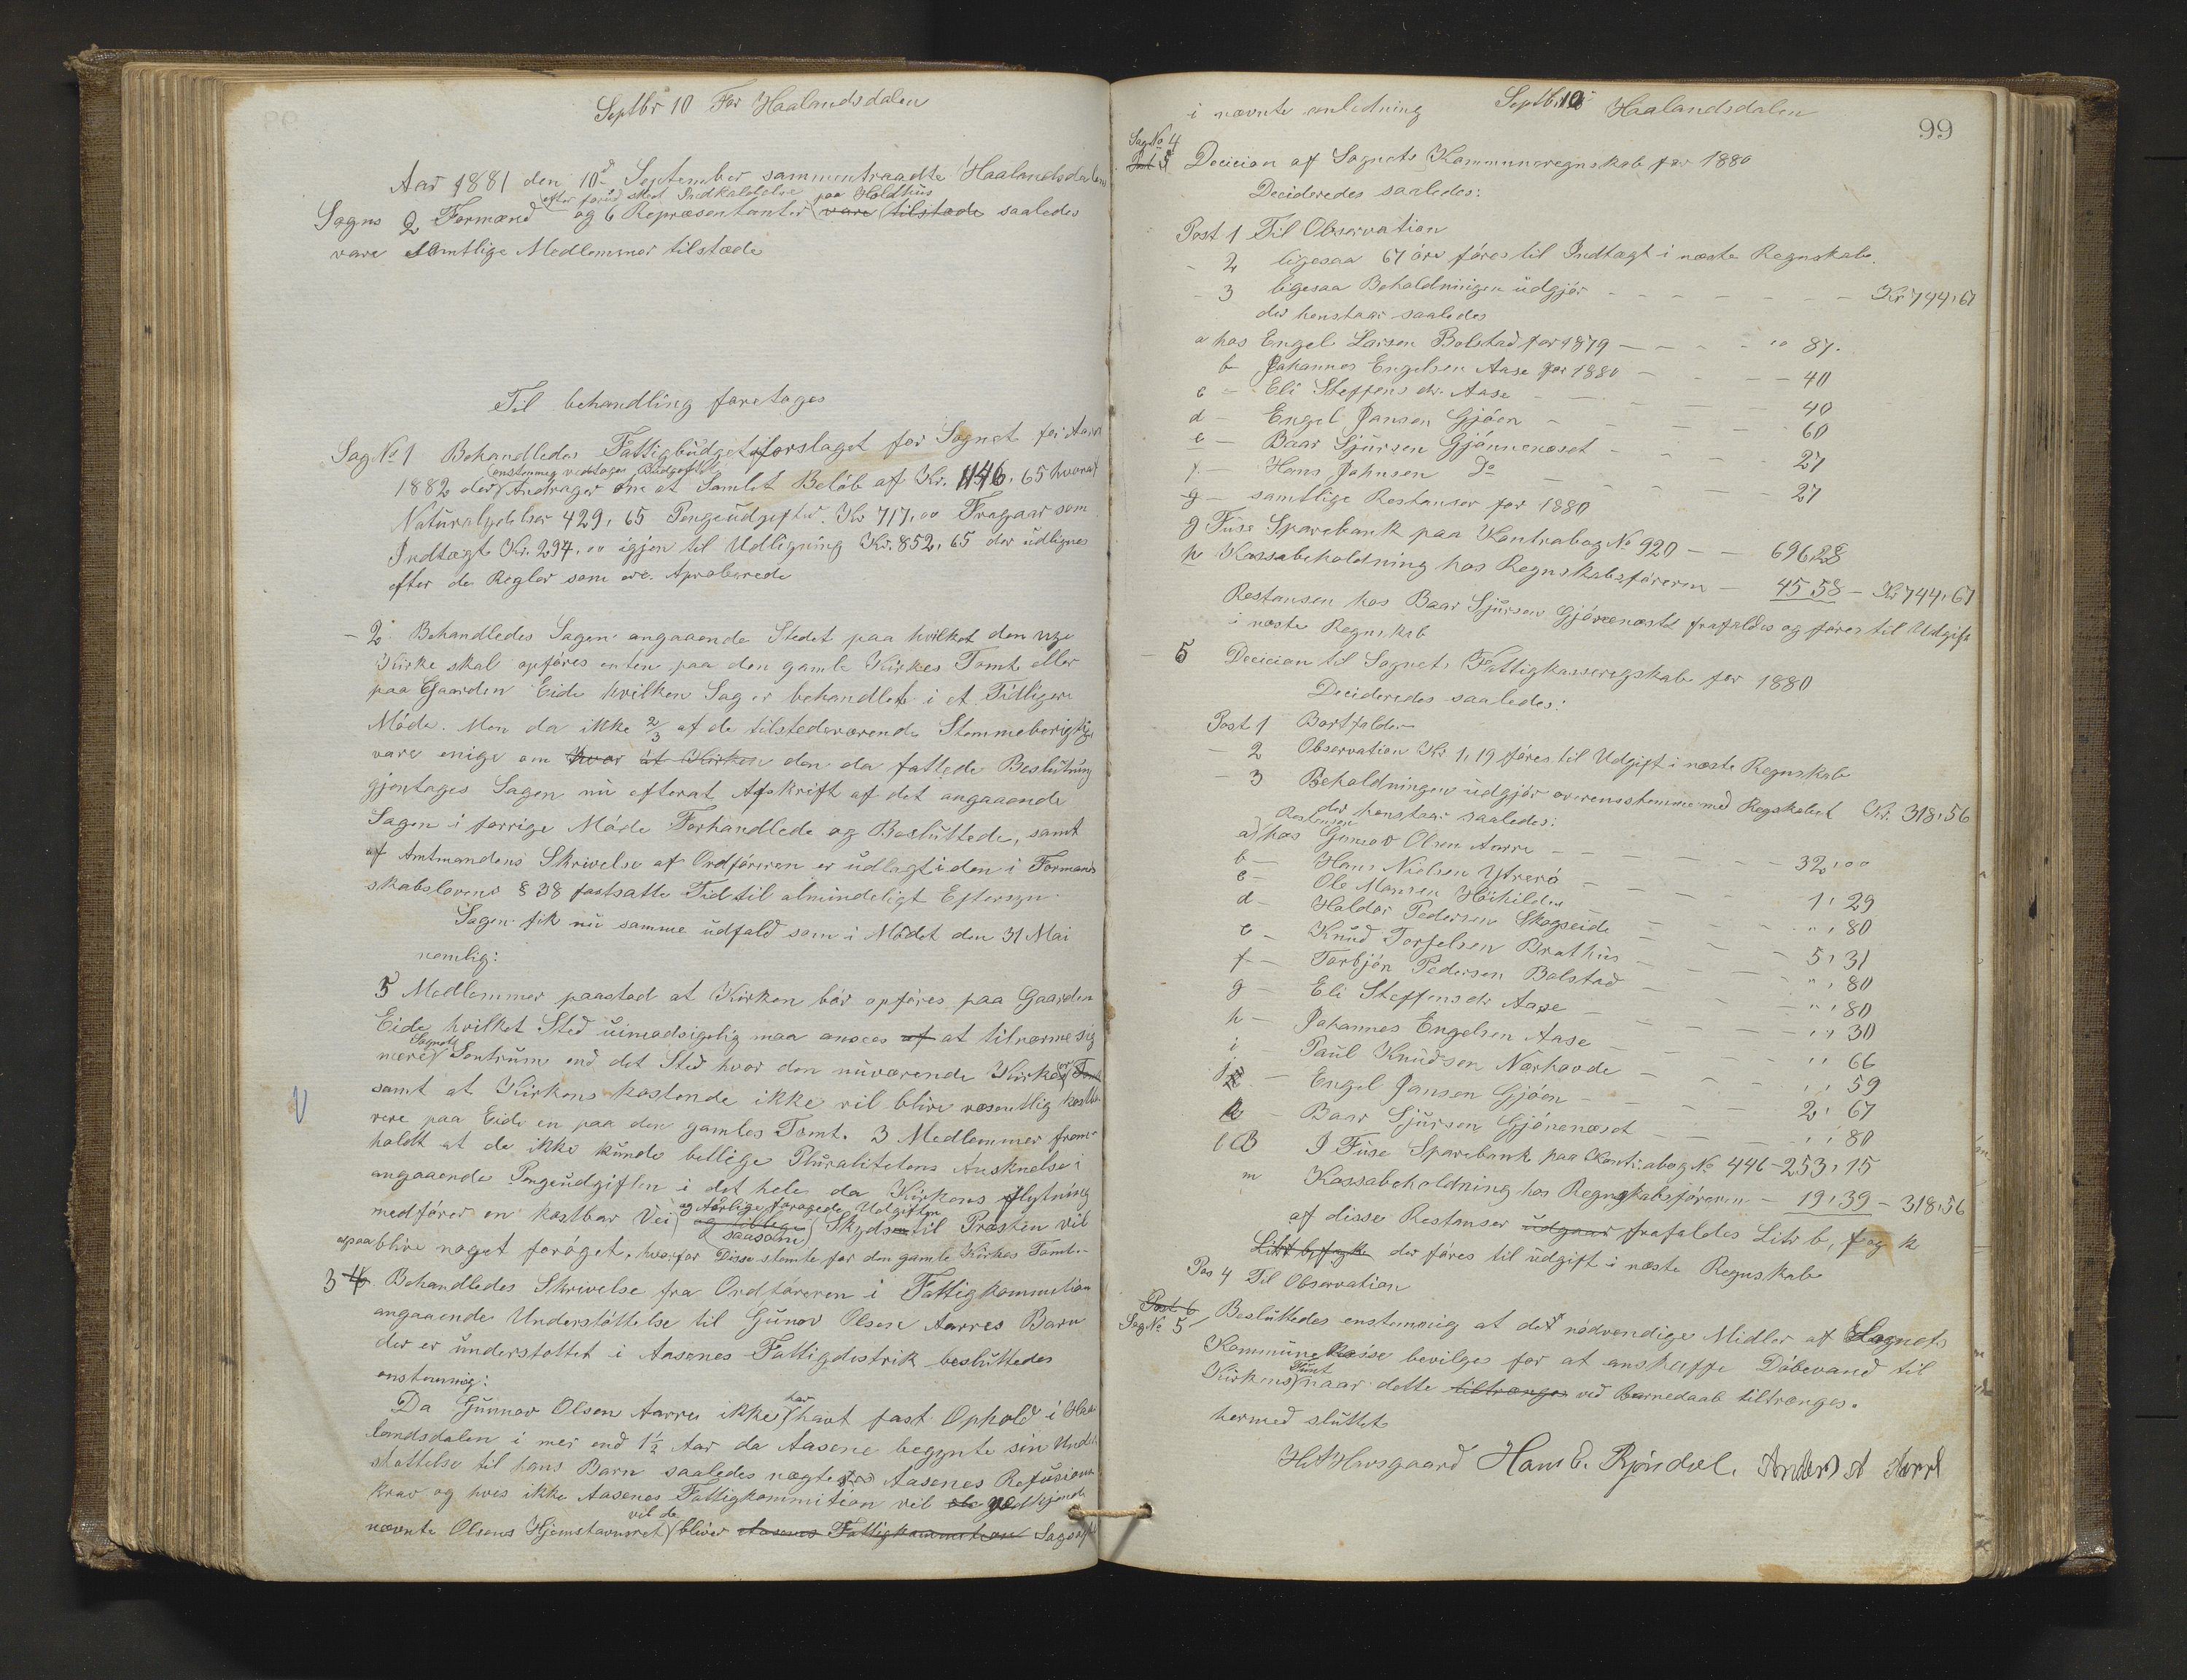 Septbr 10 For Haalandsdalen
Aar 1881 den 10d September sammentraadte Haalandsdalens
efter forud sked Indkaldelse paa Holdhus
Sogns 2 Formænd og 6 Repræsentanter vare tilstede saaledes
vare samtlige Medlemmer tilstæde
Til behandling foretages
Sag No 1 Behandledes Fattigbudgetsforslaget for Sognet for Aaret
enstemmig vedtages Budgettet
1882 der Andrager one et Samlet Beløb af Kr. 1146,65 hvoraf
Naturalydelser 429,65 Pengeudgifter Kr 717,00 Fragaar som
Indtægt Kr. 294,00 igjen til Udligning Kr. 852,65 der udlignes
efter de Regler som ere Aproberede
- 2 Behandledes Sagen angaaende Stedet paa hvilket den nye
Kirke skal opføres enten paa den gamle Kirkes Tomte eller
paa Gaarden Eide hvilken Sag er behandlet i et Tidligere
Møde. Men da ikke 2/3 af de tilstedeværende Stemmeberigtige
vare enige om hvor at Kirken den da fattede Beslutning
gjentages Sagen nu efterat Afskrift af det angaaende
Sagen i forrige Møde Forhandlede og Besluttede, samt
af Amtmandens Skrivelse af Ordføreren er udlagt i den i Formand
skabslovens § 38 fastsatte Tid til almindeligt Eftersyn
Sagen fik nu samme udfald som i Mødet den 31 Mai
nemlig:
5 Medlemmer paastod at Kirken bør opføres paa Gaarden
Eide hvilket Sted uimodsigelig maa ansees af at tilnærme sig
Sognets
mere Sentrum end det Sted hvor den nuværende Kirke er Tomt
samt at Kirkens kostende ikke vil blive væsentlig kostba
rere paa Eide en paa den gamles Tomt. 3 Medlemmer frem-
holdt at de ikke kunde bellige Pluralitetens Anskuelse i
angaaende Pengeudgiften i det hele da Kirkens flytning
og Aarlige forøgede Udgifter
medfører en kostbar Vei og tillege Skyds til Præsten vil
saasom
ogsaa blive noget forøget, hvorfor Disse stemte for den gamle Kirkes Tomt.-
3 4 Behandledes Skrivelse fra Ordføreren i Fattigkommition
angaaende Understøttelse til Gunov Olsen Aarres Barn
der er understøttet i Aasenes Fattigdestrik besluttedes
enstemmig:
har
Da Gunnov Olsen Aarre ikke havt fast Ophold i Haa
landsdalen i mer end 1 1/2 Aar da Aasene begynte sin Under
støttelse til hans Barn saaledes nægtes Aasenes Refusions
krav og hvis ikke Aasenes Fattigkommition vil vedkjende
vil de
nævnte Olsens Hjemstavnsret bliver Aasenes Fattigkommition Sagsøgt
i nævnte anledning Septb. 10 Haalandsdalen
99
Sag No 4
Post 5 Decision af Sognets Kommuneregnskab for 1880
Decideredes saaledes:
Post 1 Til Observation
- 2 ligesaa 67 øre føres til Indtægt i næste Regnskab.
- 3 ligesaa Beholdningen udgjør - - - - - - - Kr 744,67
der henstaar saaledes
a hos Engel Larsen Bolstad for 1879 - - - - „ 87.
b - Johannes Engelsen Aase for 1880 - - - - 40
c - Eli Steffens dr. Aase - - - - 40
d - Engel Jansen Gjøen - - - - 60
e - Baar Sjursen Gjønnenæset - - - - 27
f - Hans Johnsen Do - - - - 27
g - samtlige Restanser for 1880
g Fuse Sparebank paa Kontrabog No 920 - - 696,28
h Kassabeholdning hos Regnskabsføreren - 45 58 - Kr 744,67
Restansen hos Baar Sjursen Gjønenæset frafaldes og føres til Udgift
i næste Regnskab
- 5 Decicion til Sognets Fattigkasseregskab for 1880
Decideredes saaledes:
Post 1 Bortfalder-
- 2 Observation Kr 1,19 føres til Udgift i næste Regnskab
- 3 Beholdningen udgjør overensstemme med Regskabet Kr. 318,56
der henstaar saaledes:
Restansen
a) hos Gunov Olsen Aarre - - - - 32,00
b - Hans Nielsen Ytreø - - - - 1,29
c - Ole Monsen Høihilder - - - - „,80
d - Haldor Pedersen Skogseide - - - - 5,31
e - Knud Torfelsen Brathus - - - - „,80
f - Torbjøn Pedersen Bolstad - - - - „,80
g - Eli Steffensdr Aase - - - - „,30
h - Johannes Engelsen Aase - - - - „ 66
i - Paul Knudsen Nærhovde - - - - „ 59
j - Engel Jansen Gjøen - - - - 2,67
k - Baar Sjursen Gjønenæset - - - - „,80
l B I Fuse Sparebank paa Kontrabog No 446 - 253,15
m Kassabeholdning hos Regnskabsføreren - 19,39 - 318,56
af disse Restanser udgaar frafaldes Litr b, f og k
Litr b, f og k der føres til udgift i næste Regnskab
Pos 4 Til Observation
Post 6
Sag No 5 Besluttedes enstemmig at det nødvendige Midler af Sognets
Kommunekasse bevilges for at anskaffe Døbevand til
Funt
Kirkens naar dette tiltrænges ved Barnedaab tiltrænges.
hermed sluttet
H A Havsgaard Hans E. Røndal. Anders A Aarre